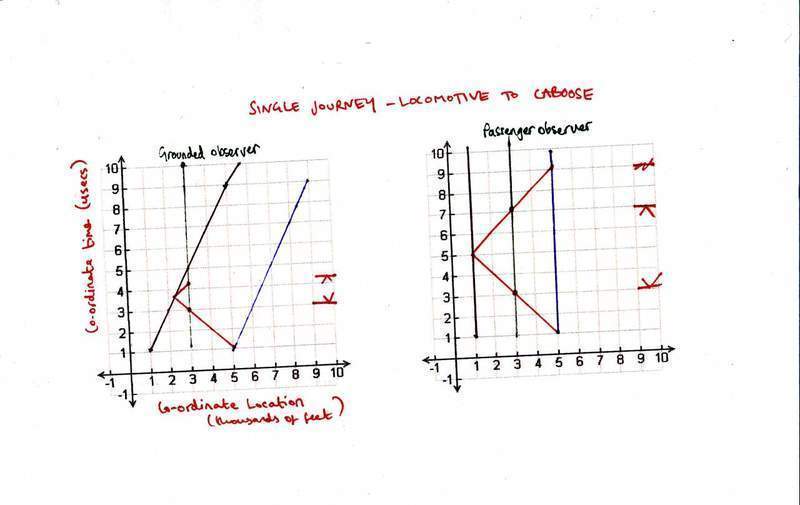 SINGLE JOURNEY - LOCOMOTIVE TO CABOOSE
Grounded observer
Co-ordinate time (μsecs)
10
9
8
7
6
5
4
3
2
1
-1
-1 1 2 3 4 5 6 7 8 9 10
Co-ordinate Location
(thousands of feet)
Passenger observer
10
9
8
7
6
5
4
3
2
1
-1
-1 1 2 3 4 5 6 7 8 9 10